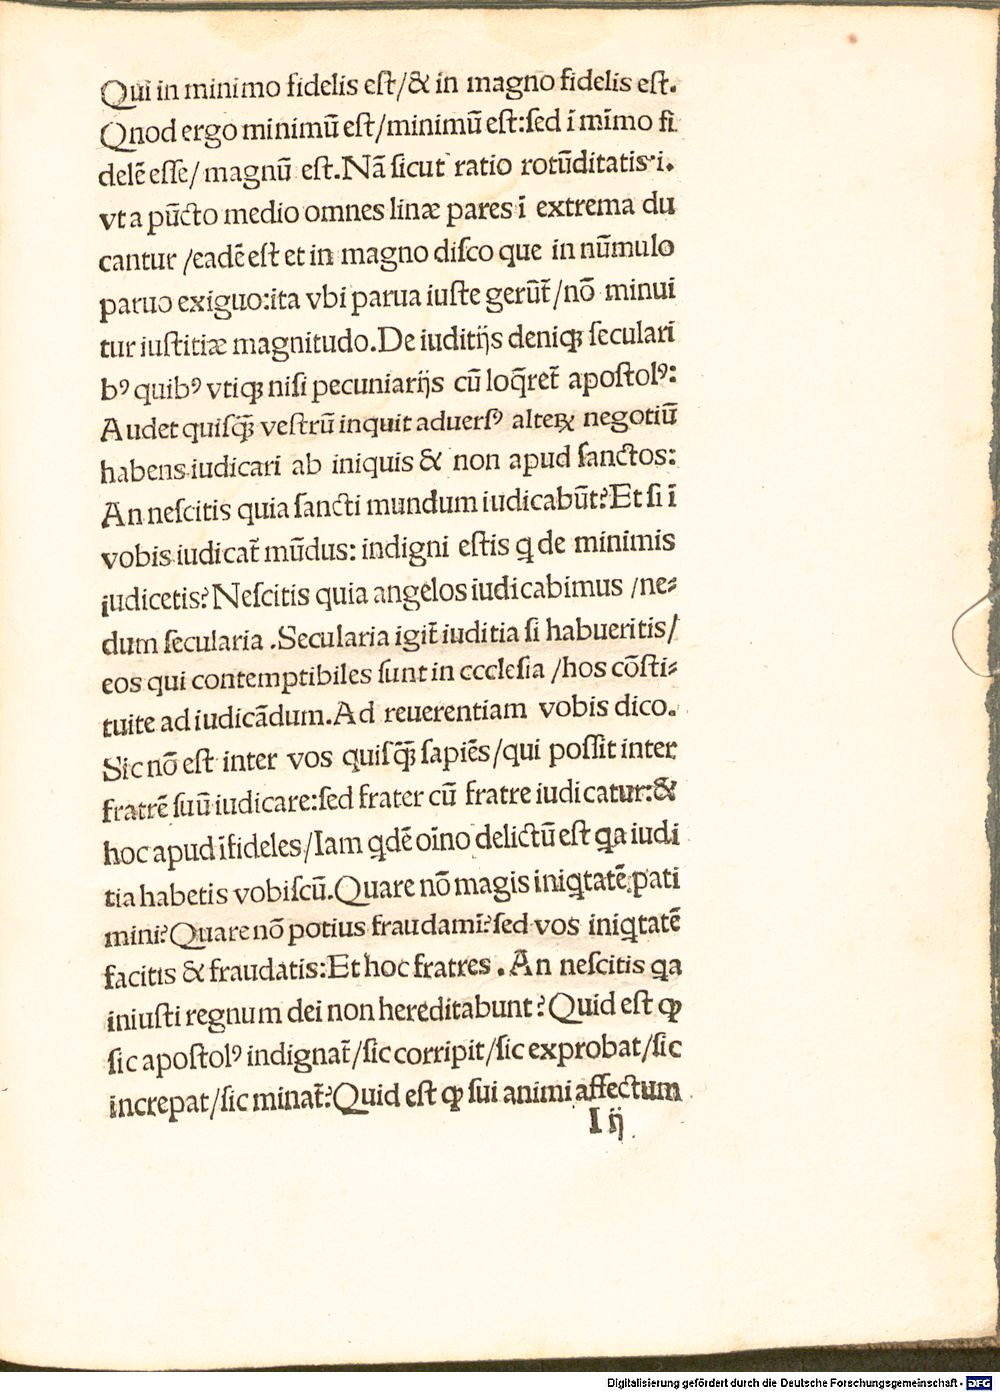 Qui in minimo fidelis eſt/& in magno fidelis eſt.
Qnod ergo minimū eſt/minimū eſt:ſed ī mīmo fi
delē eſſe/ magnū eſt.Nā ſicut ratio rotūditatis·i.
vt a pūcto medio omnes linæ pares ī extrema du
cantur /eadē eſt et in magno diſco que in nūmulo
paruo exiguo:ita vbi parua iuſte gerūt̄/nō minui
tur iuſtitiæ magnitudo.De iuditijs deniqꝫ ſeculari
bꝰ quibꝰ vtiqꝫ niſi pecuniarijs cū loq̄ret̄ apoſtolꝰ:
Audet quiſqꝫ̄ veſtrū inquit aduerſꝰ alteꝝ negotiū
habens iudicari ab iniquis & non apud ſanctos:
An neſcitis quia ſancti mundum iudicabūt?Et ſi ī
vobis iudicat̄ mūdus: indigni eſtis q de minimis
iudicetis?Neſcitis quia angelos iudicabimus /ne⸗
dum ſecularia .Secularia igit̄ iuditia ſi habueritis/
eos qui contemptibiles ſunt in ccclesia /hos cōſti⸗
tuite ad iudicādum.Ad reuerentiam vobis dico.
Sic nō eſt inter vos quiſqꝫ̄ ſapiēs/qui poſſit inter
fratrē ſuū iudicare:ſed frater cū fratre iudicatur:&
hoc apud īfideles/Iam qdē oīno delictū eſt qa iudi
tia habetis vobiſcū.Quare nō magis iniqtatē pati
mini?Quare nō potius fraudamī?ſed vos iniqtatē
facitis & fraudatis:Et hoc fratres . An neſcitis qa
iniuſti regnum dei non hereditabunt?Quid eſt ꝙ
ſic apoſtolꝰ indignat̄/ſic corripit/ſic exprobat/ſic
increpat/ſic minat̄?Quid eſt ꝙ ſui animi affectum
I ij
Digitalisierung gefördert durch die Deutsche Forschungsgemeinschaft - DFG